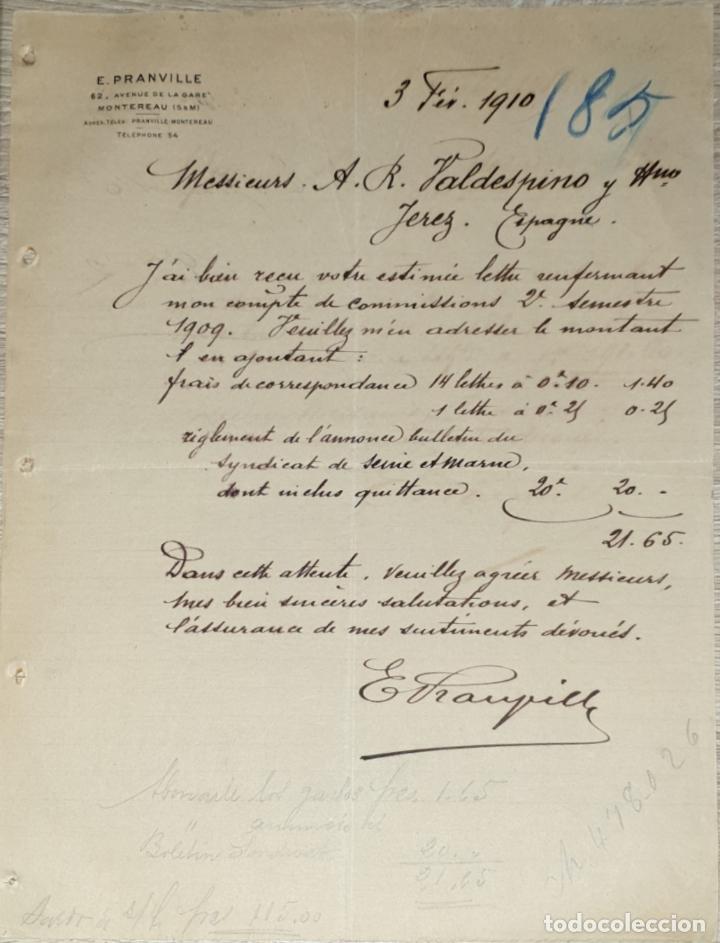 E. PRANVILLE
62, AVENUE DE LA GARE
MONTEREAU (S&M)
ADRES. TÉLÉG. PRANVILLE-MONTEREAU
TÉLÉPHONE 54
3 Fév. 1910
185
Messieurs. A. R. Valdespino y Hno
Jerez. Espagne.
J'ai bien reçu votre estimée lettre renfermant
mon compte de commissions 2e. semestre
1909. Veuillez m'en adresser le montant
en ajoutant :
frais de correspondance 14 lettres à 0f.10. 1.40
1 lettre à 0f.25 0.25
règlement de l'annonce bulletin du
syndicat de Seine et Marne,
dont inclus quittance. 20f. 20. -
21.65.
Dans cette attente, veuillez agréer Messieurs,
mes bien sincères salutations, et
l'assurance de mes sentiments dévoués.
E Pranville
Abonarle los gastos frcs 1.65
"
Boletin 20.
21.65
s/c frcs 115.00
478.026
todocoleccion